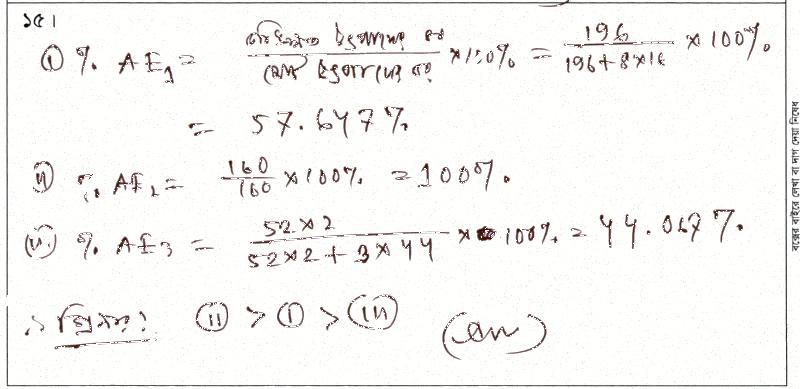 ১৫।
(i) %. AE₁ = কাঙ্ক্ষিত উৎপাদের ভর / মোট উৎপাদের ভর × 100% = 196 / 196+8×18 × 100%.
= 57.647%.
(ii) %. AE₂ = 160 / 160 × 100%. = 100%.
(iii) %. AE₃ = 52×2 / 52×2+3×44 × 100%. = 44.067%.
(ii) > (i) > (iii) (Ans)
বক্সের বাইরে লেখা বা দাগ দেয়া নিষেধ